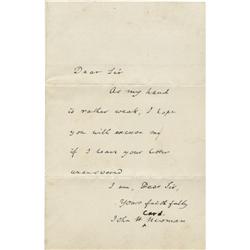 Dear Sir
As my hand
is rather weak, I hope
you will excuse my
if I leave your letter
unanswered
I am, Dear Sir,
Yours faithfully
Card.
John H Newman